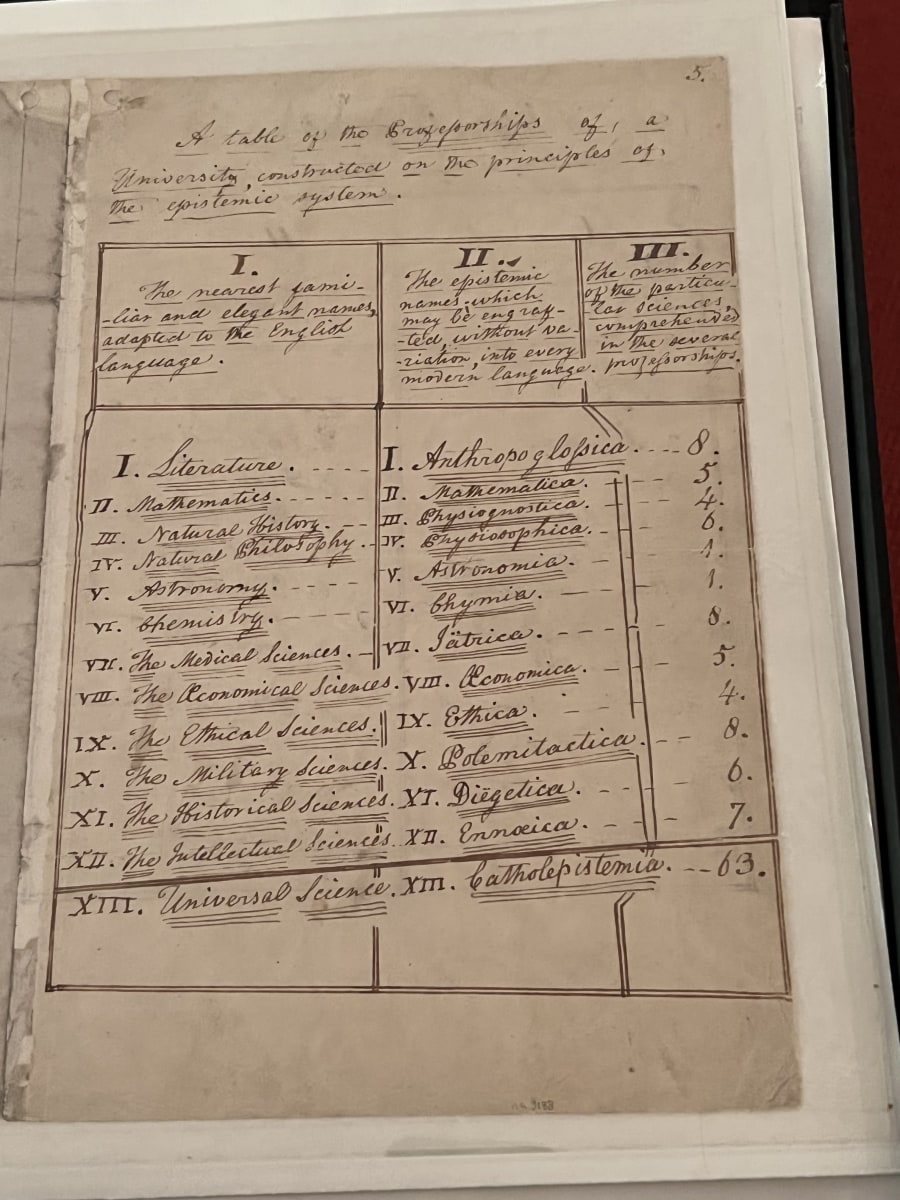 5.
A table of the Professorships of, a
University, constructed on the principles of,
the epistemic system.
I.
The nearest fami-
-liar and elegant names,
adapted to the English
language.
II.
The epistemic
names, which
may be engraf-
-ted, without va-
-riation, into every
modern language.
III.
The number
of the particu-
-lar sciences,
comprehended
in the several
professorships.
I. Literature. I. Anthropoglossica. 8.
II. Mathematics. II. Mathematica. 5.
III. Natural History. III. Physiognostica. 4.
IV. Natural Philosophy. IV. Physiosophica. 6.
V. Astronomy. V. Astronomia. 1.
VI. Chemistry. VI. Chymia. 1.
VII. The Medical Sciences. VII. Iätrica. 8.
VIII. The Œconomical Sciences. VIII. Œconomica. 5.
IX. The Ethical Sciences. IX. Ethica. 4.
X. The Military Sciences. X. Polemitactica. 8.
XI. The Historical Sciences. XI. Diëgetica. 6.
XII. The Intellectual Sciences. XII. Ennœica. 7.
XIII. Universal Science. XIII. Catholepistemia. 63.